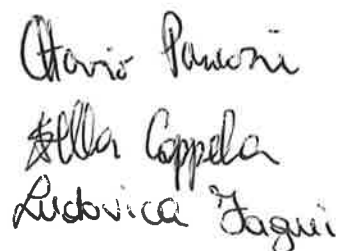 Ottavio
Stella Coppola
Ludovica Fagui